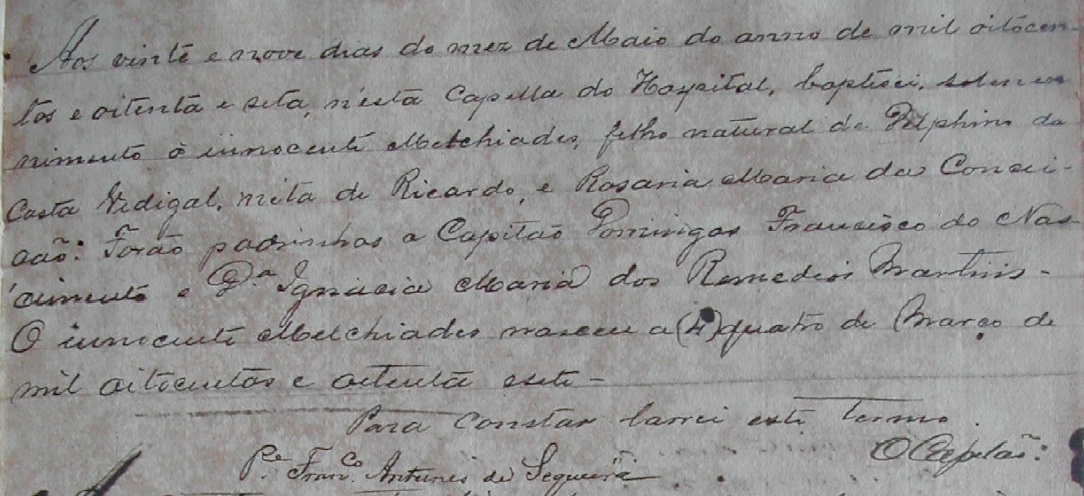 Aos vinte e nove dias do mez de Maio do anno de mil oitocen-
tos e oitenta e sete, n'esta Capella do Hospital, baptisei, solem
nimente o innocente Melchiades, filho natural de Delphino da
Costa Vedigal, neto de Ricardo, e Rosaria Maria da Concei-
ção: Forão padrinhos o Capitão Domingos Francisco do Nas-
cimento e D.ª Ignacia Maria dos Remedios Martins -
O innocente Melchiades nasceu a (4) quatro de Março de
mil oitocentos e oitenta e sete -
Para constar lavrei este termo
O Capelão:
P.e Fran.co Antunes de Sequeira